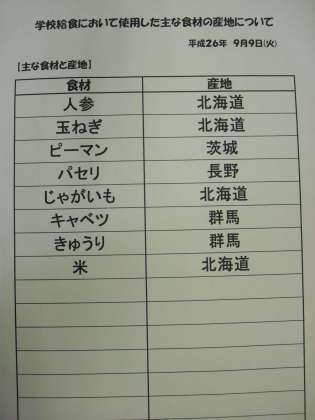 学校給食において使用した主な食材の産地について
平成26年 9月9日(火)
【主な食材と産地】
食材 産地
人参 北海道
玉ねぎ 北海道
ピーマン 茨城
パセリ 長野
じゃがいも 北海道
キャベツ 群馬
きゅうり 群馬
米 北海道